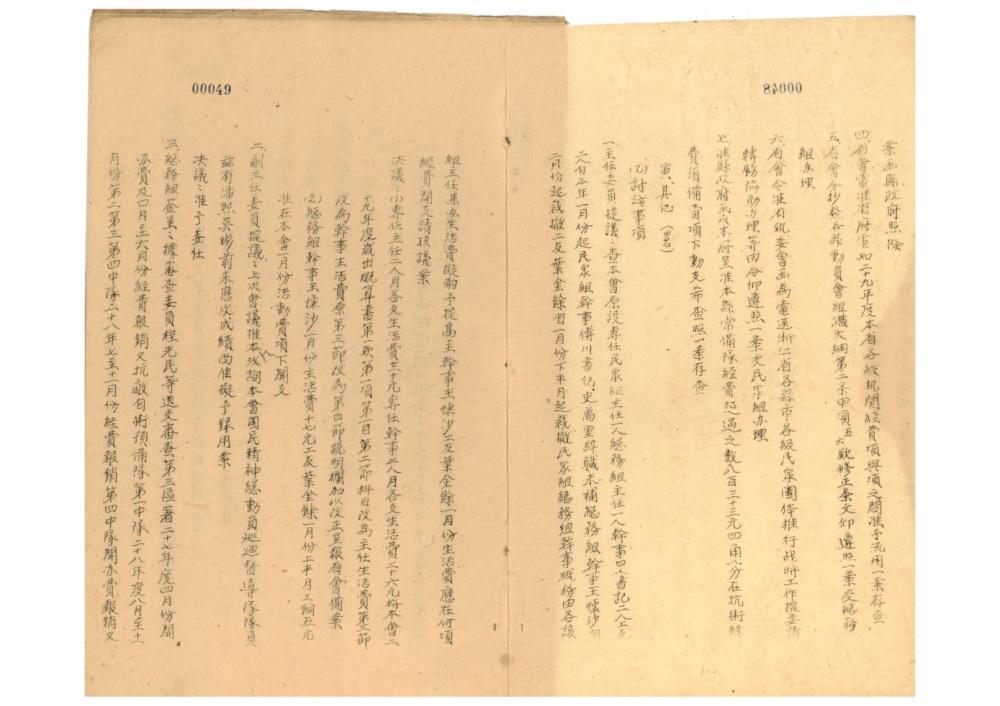 00048
案函縣政府照撥
四、省會電准省府電知二十九年度本省各級机関經費項與項之間准予流用一案存查
五、省會令抄發各縣動員會組織大綱第二条中項五六欵修正条文仰遵照一案交總務
組办理
六、省會令准省執委會函為電送浙江省各縣市各級民衆團体推行战時工作提要請
轉飭協助办理等由令仰遵照一案交民衆組办理
七、准縣政府函以本府呈准本縣常備隊經費超過之数八百三十三元四角六分在抗衛經
費項備費項下動支希查照一案存查
寅、其他（畧）
(乙)討論事項
一、主任委員提議：查本會原設專任民衆組主任一人總務組主任一人幹事四人書記二人工友
二人自本年一月份起民衆組幹事傅川書記史萬里辞職未補總務組幹事王懐沙自
二月份起裁撤工友葉金餘自一月份下半月起裁撤民衆組總務組幹事職務由各該
00049
組主任兼办生活費擬酌予提高至幹事王懐沙工友葉金餘一月份生活費應在何項
經費開支請核議案
決議：(1)專任主任二人月各支生活費三十元專任幹事二人月各支生活費二十六元將本會二
十九年度歲出概算書第一欵第一項第一目第二節科目改為主任生活費第三節
改為幹事生活費原第三節改為第四節說明欄加以改正呈報省會備案
(2)總務組幹事王懐沙一月份生活費十七元工友葉金餘一月份上半月工餉五元
准在本會一月份活動費項下開支
二、副主任委員提議：上次會議推本攷詢本會國民精神總動員巡迴督導隊隊員
茲有潘熙吳彬前来應攷成績尚佳擬予錄用案
決議：准予委任
三、總務組簽呈：據審查委員程光民等送交審查第三區署二十七年度四月份開
办費及四月至六月份經費報銷又抗敵自衛預備隊第一中隊二十八年度八月至十一
月份第二第三第四中隊二十八年七至十一月份經費報銷第四中隊開办費報銷又